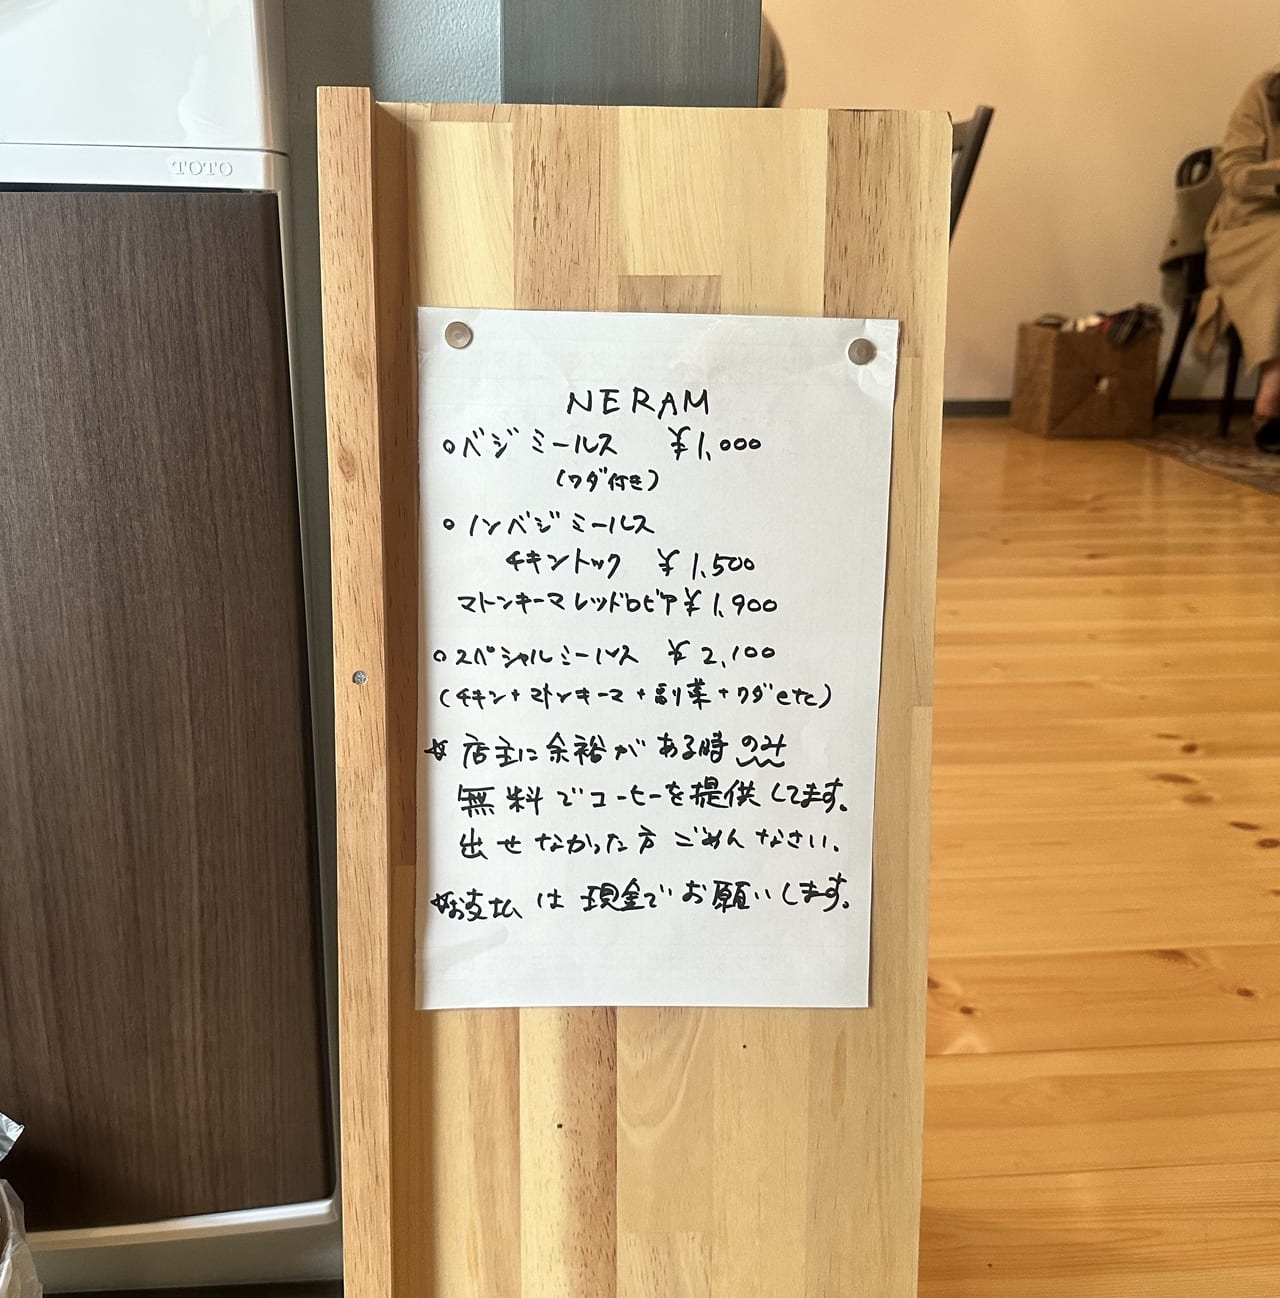 TOTO
NERAM
○ベジミールス ¥1,000
(ワダ付き)
○ノンベジミールス
チキントック ¥1,500
マトンキーマレッドロビア¥1,900
○スペシャルミールス ¥2,100
(チキン+マトンキーマ+副菜+ワダetc)
☆店主に余裕がある時のみ
無料でコーヒーを提供してます。
出せなかった方ごめんなさい。
☆お支払は現金でお願いします。